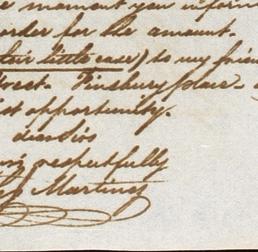 moment you inform
order for the amount.
their little case) to my frien
Street. Finsbury place -
st opportunity.
dear Sirs
respectfully
Martinez